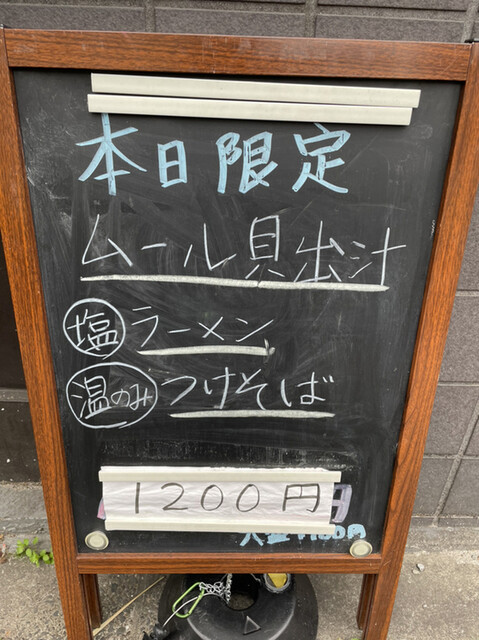 本日限定
ムール貝出汁
塩 ラーメン
温のみ つけそば
1200円